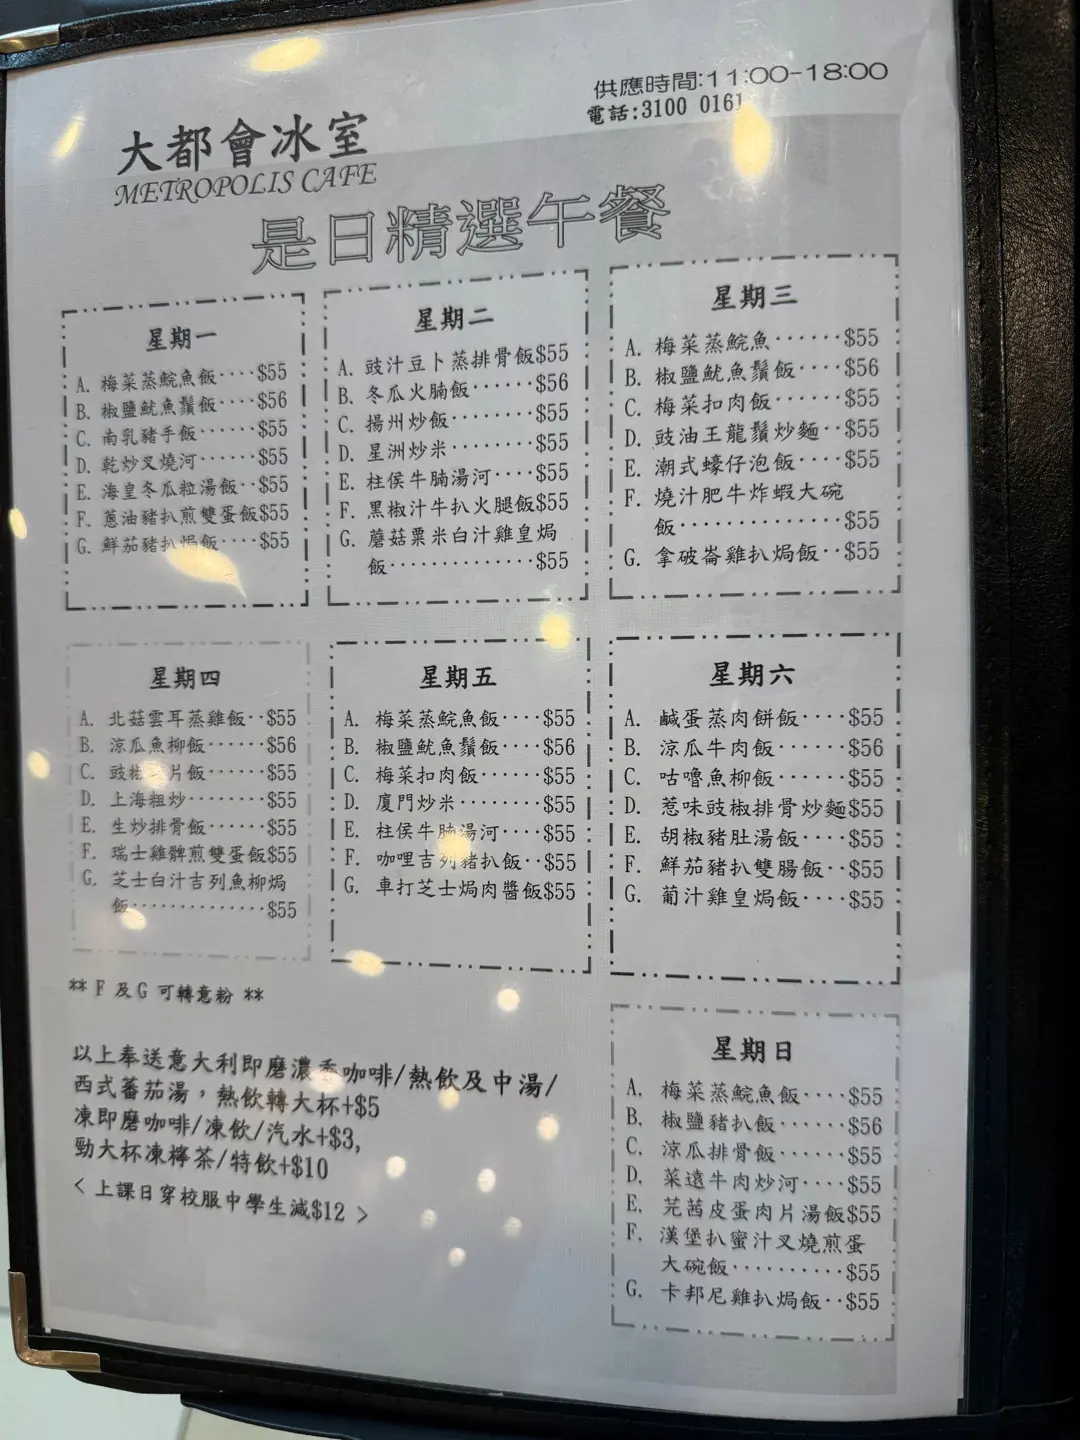 供應時間:11:00-18:00
電話:3100 0161
大都會冰室
METROPOLIS CAFE
是日精選午餐
星期一
A. 梅菜蒸鯇魚飯····$55
B. 椒鹽魷魚鬚飯····$56
C. 南乳豬手飯······$55
D. 乾炒叉燒河······$55
E. 海皇冬瓜粒湯飯··$55
F. 蔥油豬扒煎雙蛋飯$55
G. 鮮茄豬扒焗飯····$55
星期二
A. 豉汁豆卜蒸排骨飯$55
B. 冬瓜火腩飯······$56
C. 揚州炒飯········$55
D. 星洲炒米········$55
E. 柱侯牛腩湯河····$55
F. 黑椒汁牛扒火腿飯$55
G. 蘑菇粟米白汁雞皇焗
飯··············$55
星期三
A. 梅菜蒸鯇魚······$55
B. 椒鹽魷魚鬚飯····$56
C. 梅菜扣肉飯······$55
D. 豉油王龍鬚炒麵··$55
E. 潮式蠔仔泡飯····$55
F. 燒汁肥牛炸蝦大碗
飯··············$55
G. 拿破崙雞扒焗飯··$55
星期四
A. 北菇雲耳蒸雞飯··$55
B. 涼瓜魚柳飯······$56
C. 豉椒 片飯······$55
D. 上海粗炒········$55
E. 生炒排骨飯······$55
F. 瑞士雞髀煎雙蛋飯$55
G. 芝士白汁吉列魚柳焗
飯··············$55
星期五
A. 梅菜蒸鯇魚飯····$55
B. 椒鹽魷魚鬚飯····$56
C. 梅菜扣肉飯······$55
D. 廈門炒米········$55
E. 柱侯牛腩湯河····$55
F. 咖哩吉列豬扒飯··$55
G. 車打芝士焗肉醬飯$55
星期六
A. 鹹蛋蒸肉餅飯····$55
B. 涼瓜牛肉飯······$56
C. 咕嚕魚柳飯······$55
D. 惹味豉椒排骨炒麵$55
E. 胡椒豬肚湯飯····$55
F. 鮮茄豬扒雙腸飯··$55
G. 葡汁雞皇焗飯····$55
** F 及 G 可轉意粉 **
以上奉送意大利即磨濃香咖啡/熱飲及中湯/
西式蕃茄湯，熱飲轉大杯+$5
凍即磨咖啡/凍飲/汽水+$3,
勁大杯凍檸茶/特飲+$10
< 上課日穿校服中學生減$12 >
星期日
A. 梅菜蒸鯇魚飯····$55
B. 椒鹽豬扒飯······$56
C. 涼瓜排骨飯······$55
D. 菜遠牛肉炒河····$55
E. 芫茜皮蛋肉片湯飯$55
F. 漢堡扒蜜汁叉燒煎蛋
大碗飯··········$55
G. 卡邦尼雞扒焗飯··$55